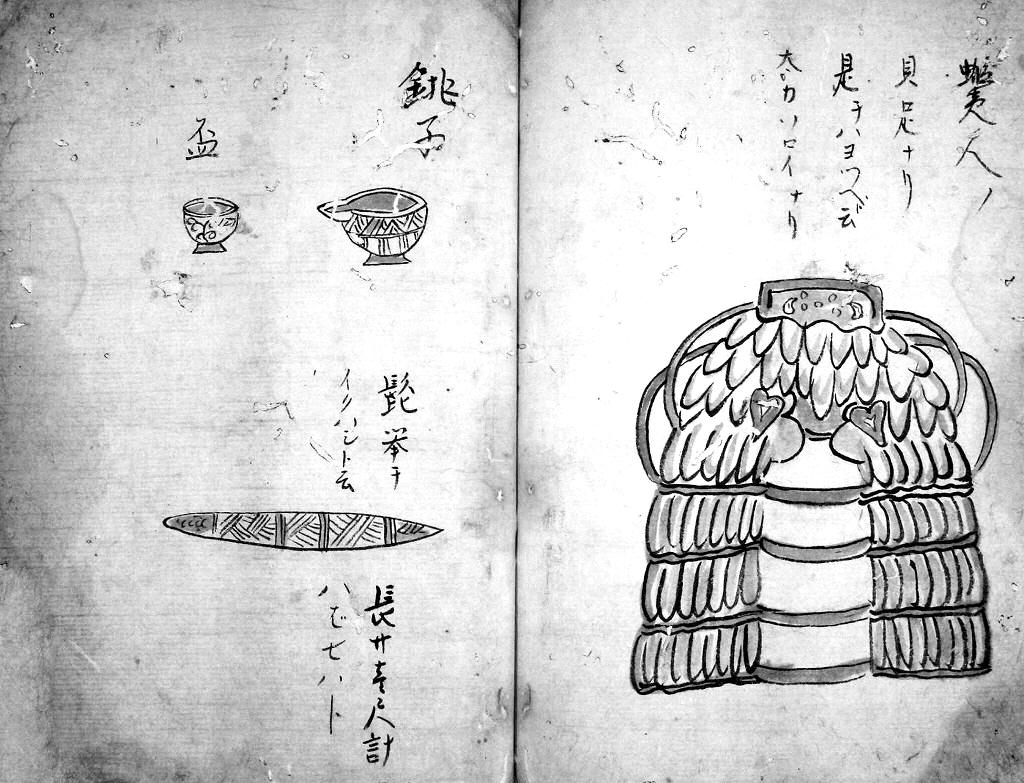 蝦夷人ノ
具足ナリ
是チハヨツヘ云
大カソロイナリ
銚子
盃
髭挙チ
イクハシト云
長サ壱尺計
ハヾセハト